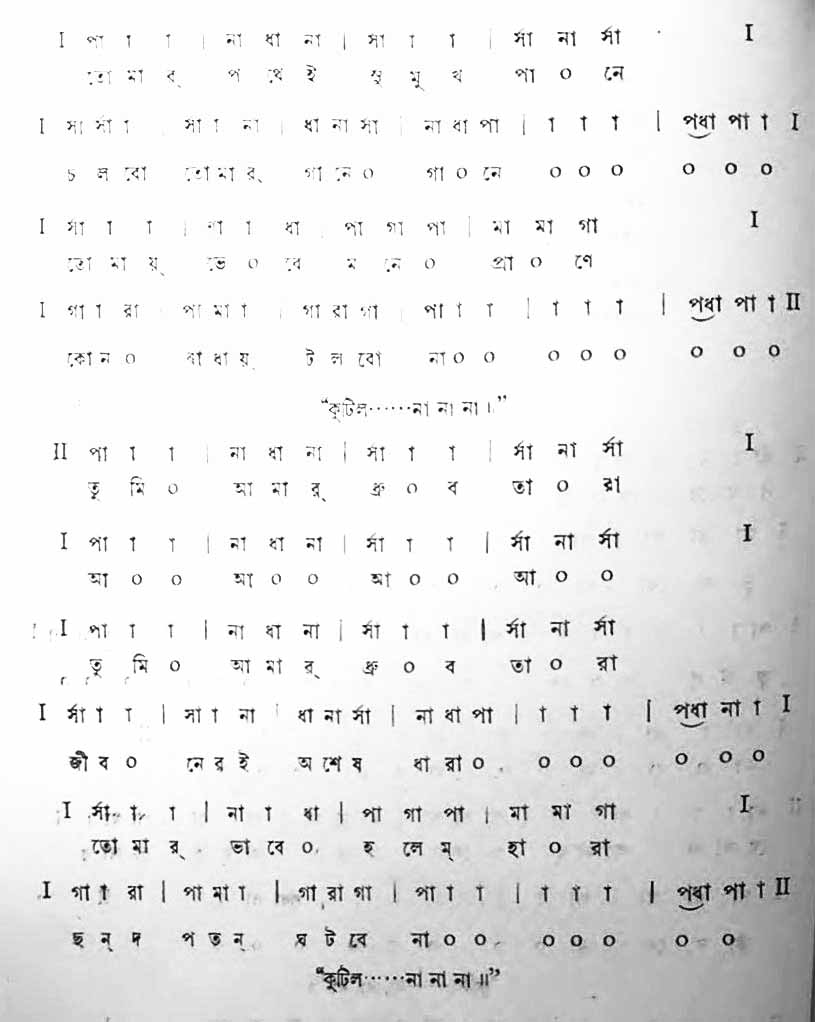 I পা া া | না ধা না | সা া া | র্সা না র্সা I
তো মা র্ প থে ই সু মু খ পা ০ নে
I র্সা র্সা া | র্সা া না | ধা না র্সা | না ধা পা | া া া | পধা পা া I
চ ল বো তো মা র্ গা নে ০ গা ০ নে ০ ০ ০ ০ ০ ০
I র্সা া া | না া ধা | পা গা পা | মা মা গা I
তো মা য়্ ভে ০ বে ম নে ০ প্রা ০ ণে
I গা া রা | পা মা া | গা রা গা | পা া া | া া া | পধা পা া II
কো ন ০ বা ধা য়্ ট ল বো না ০ ০ ০ ০ ০ ০ ০ ০
“কুটিল……না না না॥”
II পা া া | না ধা না | র্সা া া | র্সা না র্সা I
তু মি ০ আ মা র্ ধ্রু ০ ব তা ০ রা
I পা া া | না ধা না | র্সা া া | র্সা না র্সা I
আ ০ ০ আ ০ ০ আ ০ ০ আ ০ ০
I পা া া | না ধা না | র্সা া া | র্সা না র্সা
তু মি ০ আ মা র্ ধ্রু ০ ব তা ০ রা
I র্সা া া | সা া না | ধা না র্সা | না ধা পা | া া া | পধা না া I
জী ব ০ নে র ই অ শে ষ ধা রা ০ ০ ০ ০ ০ ০ ০
I র্সা া া | না া ধা | পা গা পা | মা মা গা I
তো মা র্ ভা বে ০ হ লে ম্ হা ০ রা
I গা া রা | পা মা া | গা রা গা | পা া া | া া া | পধা পা া II
ছ ন্ দ প ত ন্ ঘ ট বে না ০ ০ ০ ০ ০ ০ ০
“কুটিল……না না না॥”